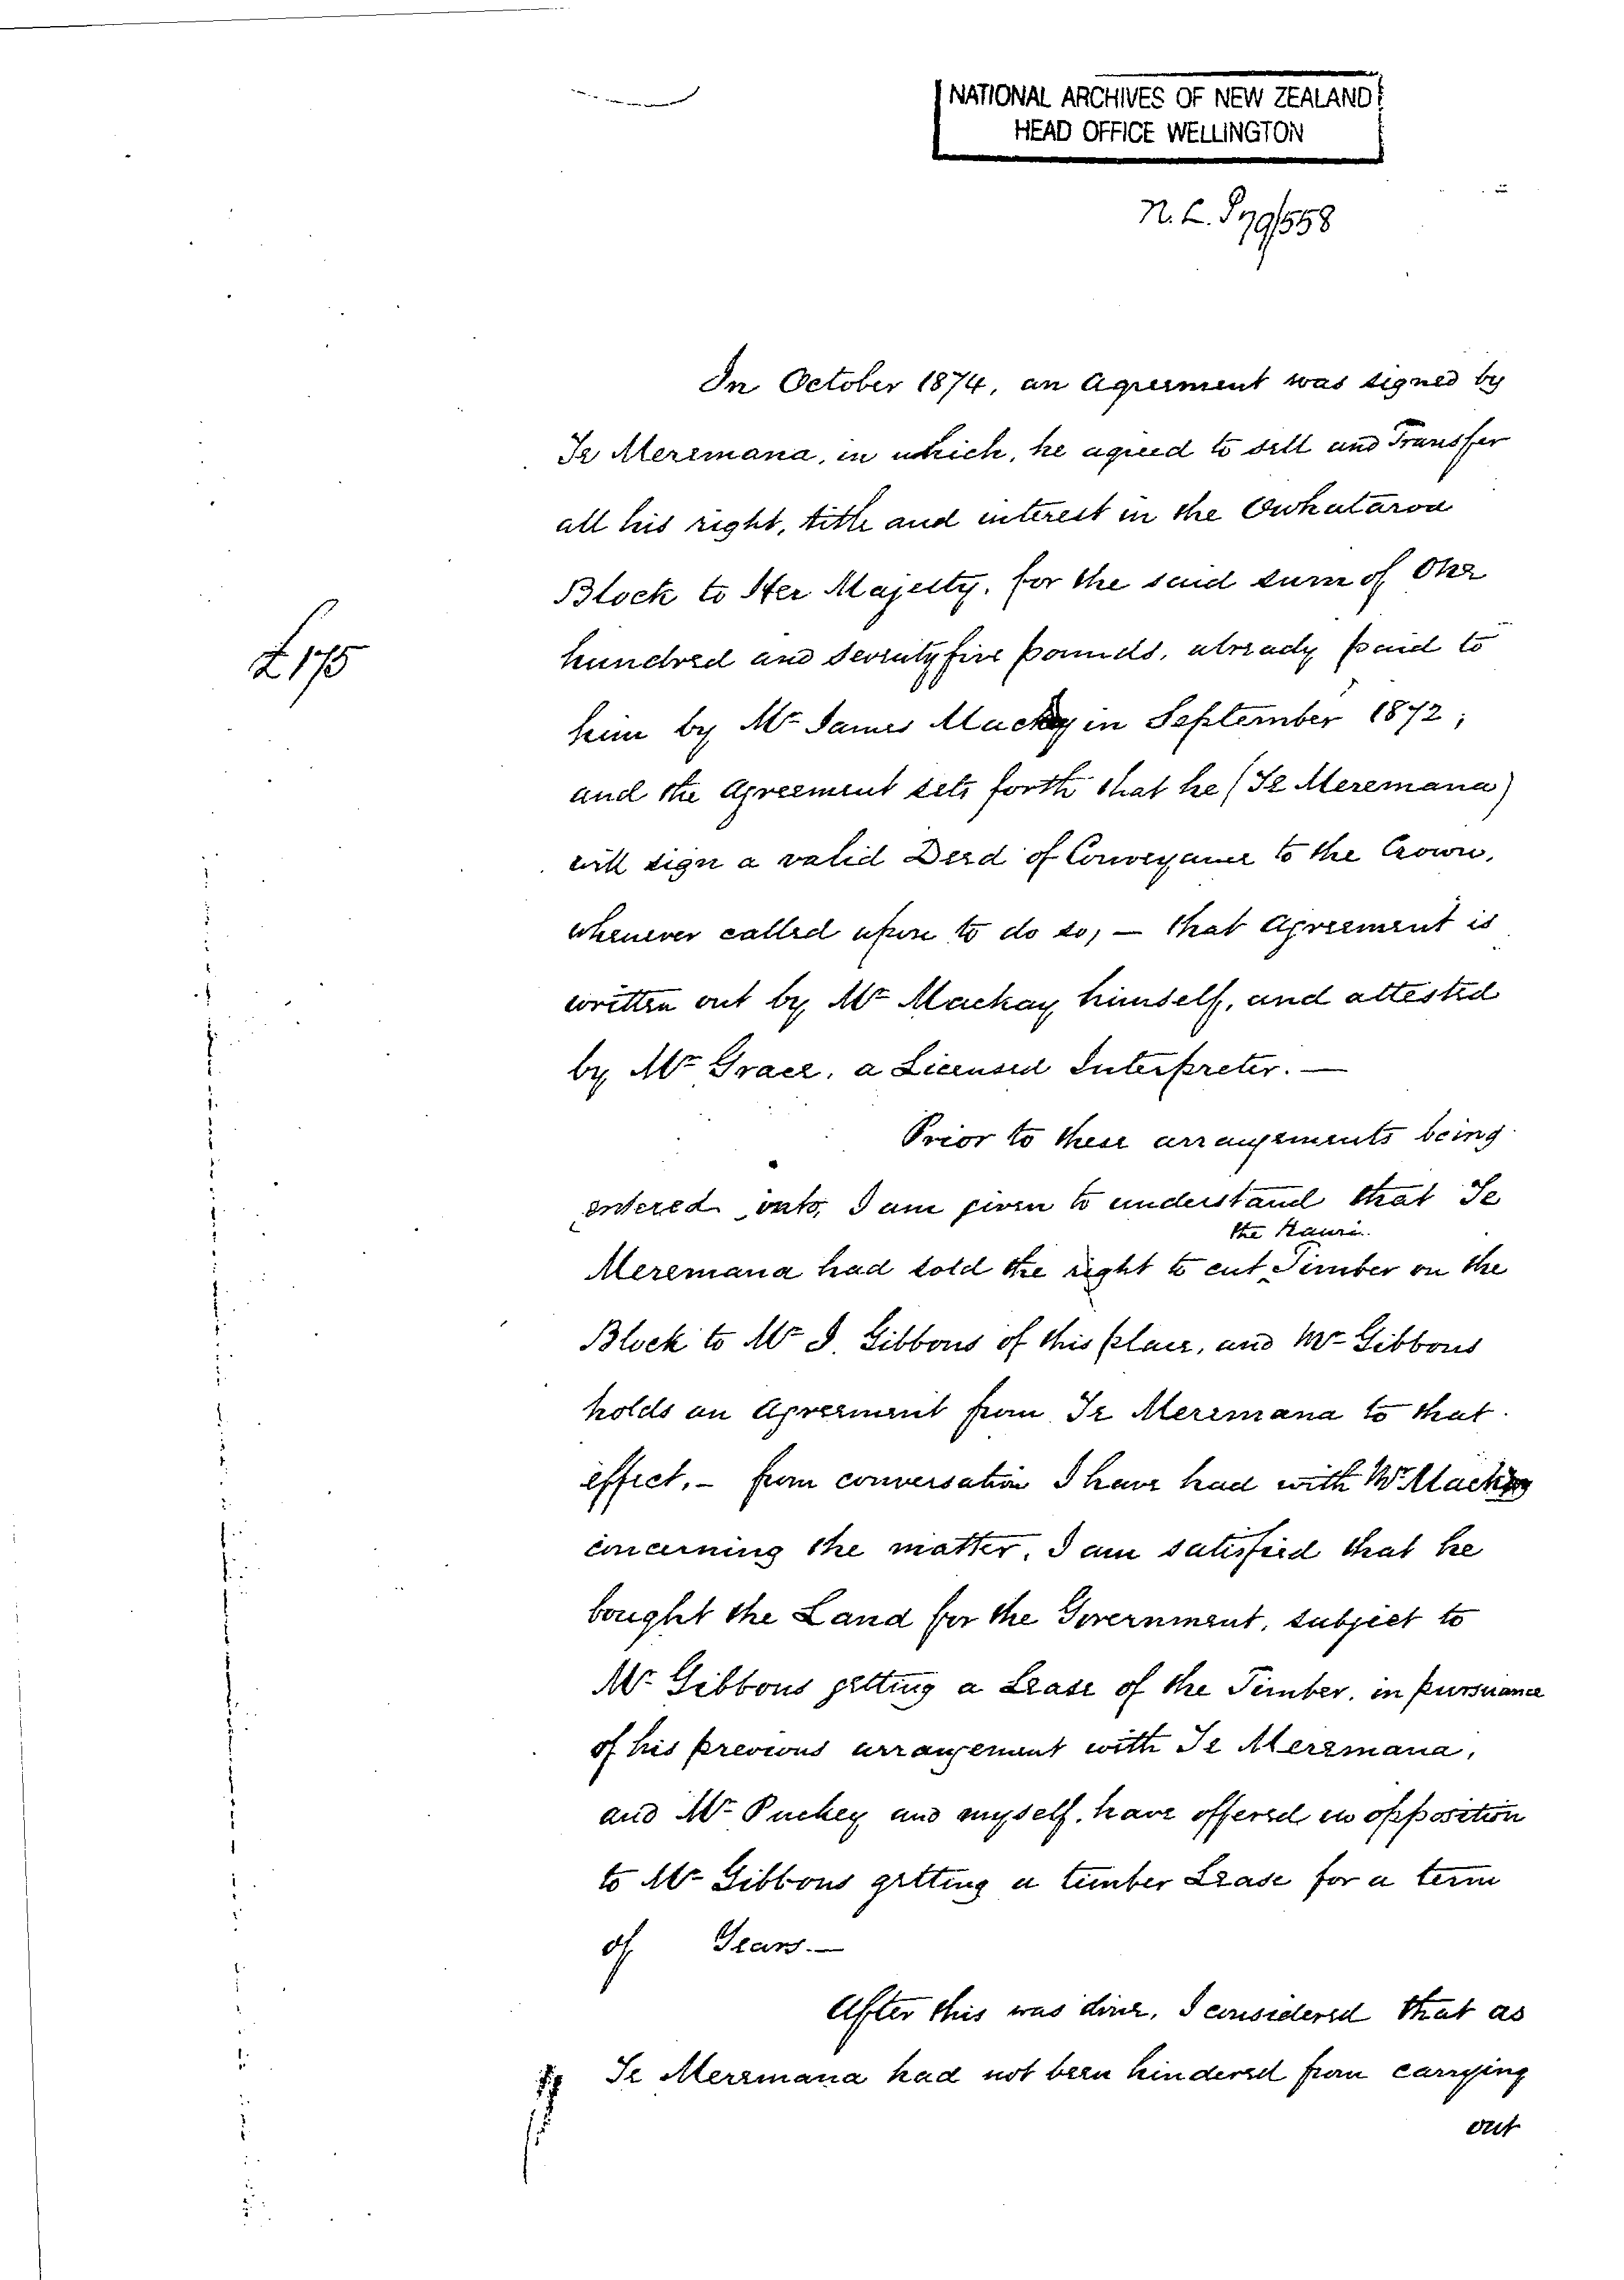 NATIONAL ARCHIVES OF NEW ZEALAND
HEAD OFFICE WELLINGTON
N.L.P 79/558
In October 1874, an Agreement was signed by
Te Meremana, in which, he agreed to sell and Transfer
all his right, title and interest in the Owhataroa
Block to Her Majesty, for the said sum of One
£175
hundred and Seventyfive pounds, already paid to
him by Mr James Mackay in September 1872;
and the Agreement sets forth that he (Te Meremana)
will sign a valid Deed of Conveyance to the Crown,
whenever called upon to do so, — that Agreement is
written out by Mr Mackay himself, and attested
by Mr Grace, a Licensed Interpreter. —
Prior to these arrangements being
entered into, I am given to understand that Te
the Kauri
Meremana had sold the right to cut Timber on the
Block to Mr J. Gibbons of this place, and Mr Gibbons
holds an Agreement from Te Meremana to that
effect. – from conversation I have had with Mr Mackay
concerning the matter, I am satisfied that he
bought the Land for the Government, subject to
Mr Gibbons getting a Lease of the Timber, in pursuance
of his previous arrangement with Te Meremana,
and Mr Puckey and myself, have offered no opposition
to Mr Gibbons getting a timber Lease for a term
of Years. —
After this was done, I considered that as
Te Meremana had not been hindered from carrying
out